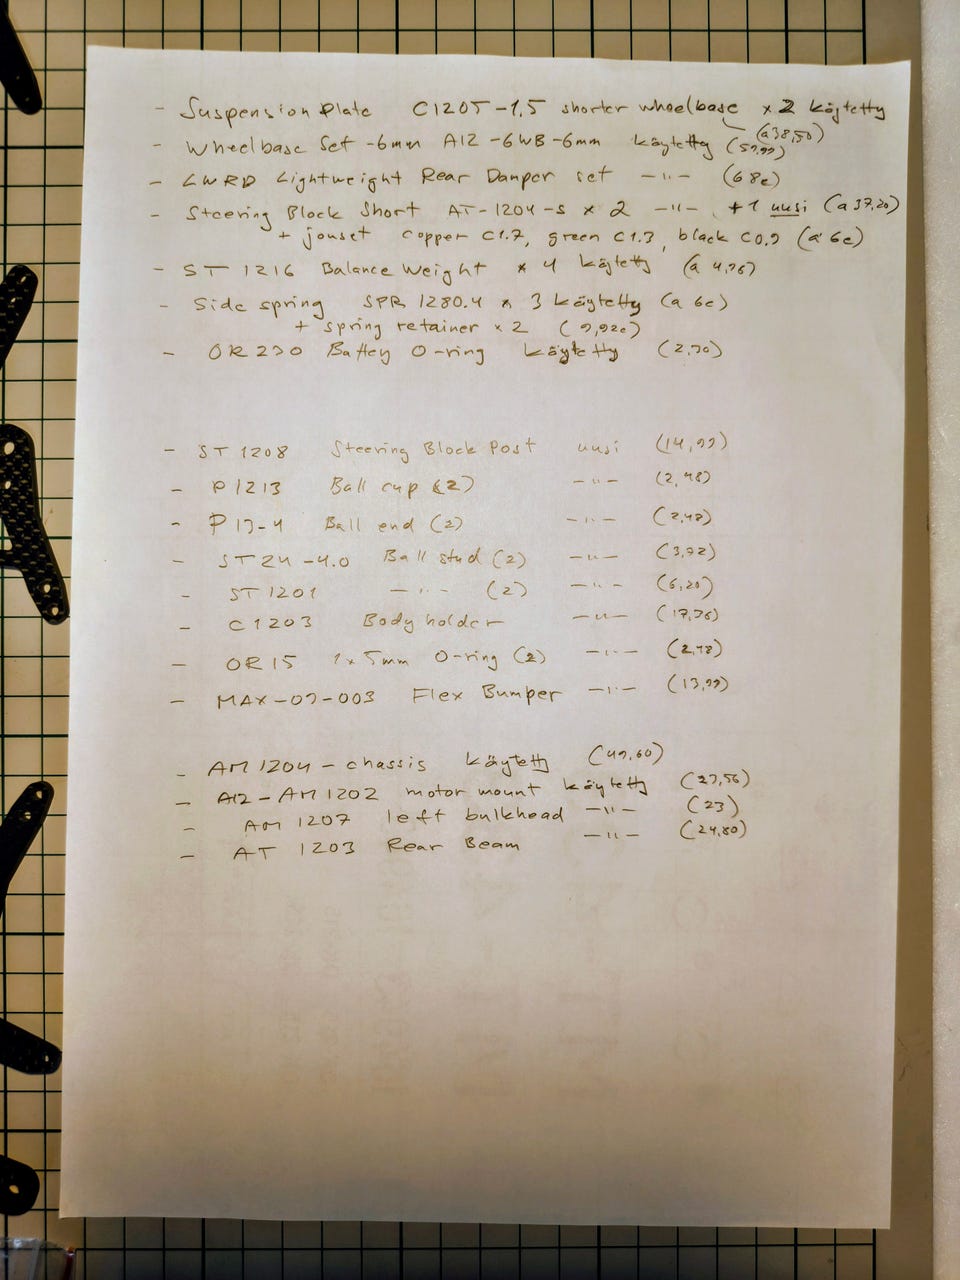 - Suspension Plate C120T-1,5 shorter wheelbase x 2 käytetty
(a 38,50)
- Wheelbase Set -6mm A12-6WB-6mm käytetty (59,99)
- LWRD Lightweight Rear Damper set -"- (68€)
- Steering Block Short AT-1204-S x 2 -"- +1 uusi (a 37,20)
+ jouset copper C1.7, green C1.3, black C0.9 (a 6€)
- ST 1216 Balance Weight x 4 käytetty (a 4,96)
- Side spring SPR 1280.4 x 3 käytetty (a 6€)
+ spring retainer x 2 (9,92€)
- OR290 Battey O-ring käytetty (2,90)
- ST 1208 Steering Block Post uusi (14,99)
- P1213 Ball cup (2) -"- (2,48)
- P13-4 Ball end (2) -"- (2,48)
- ST24-4.0 Ball stud (2) -"- (3,72)
- ST1201 -"- (2) -"- (6,20)
- C1203 Body holder -"- (17,36)
- OR15 1x5mm O-ring (2) -"- (2,48)
- MAX-07-003 Flex Bumper -"- (13,99)
- AM1204-chassis käytetty (49,60)
- A12-AM1202 motor mount käytetty (27,56)
- AM 1207 left bulkhead -"- (23)
- AT 1203 Rear Beam -"- (24,80)